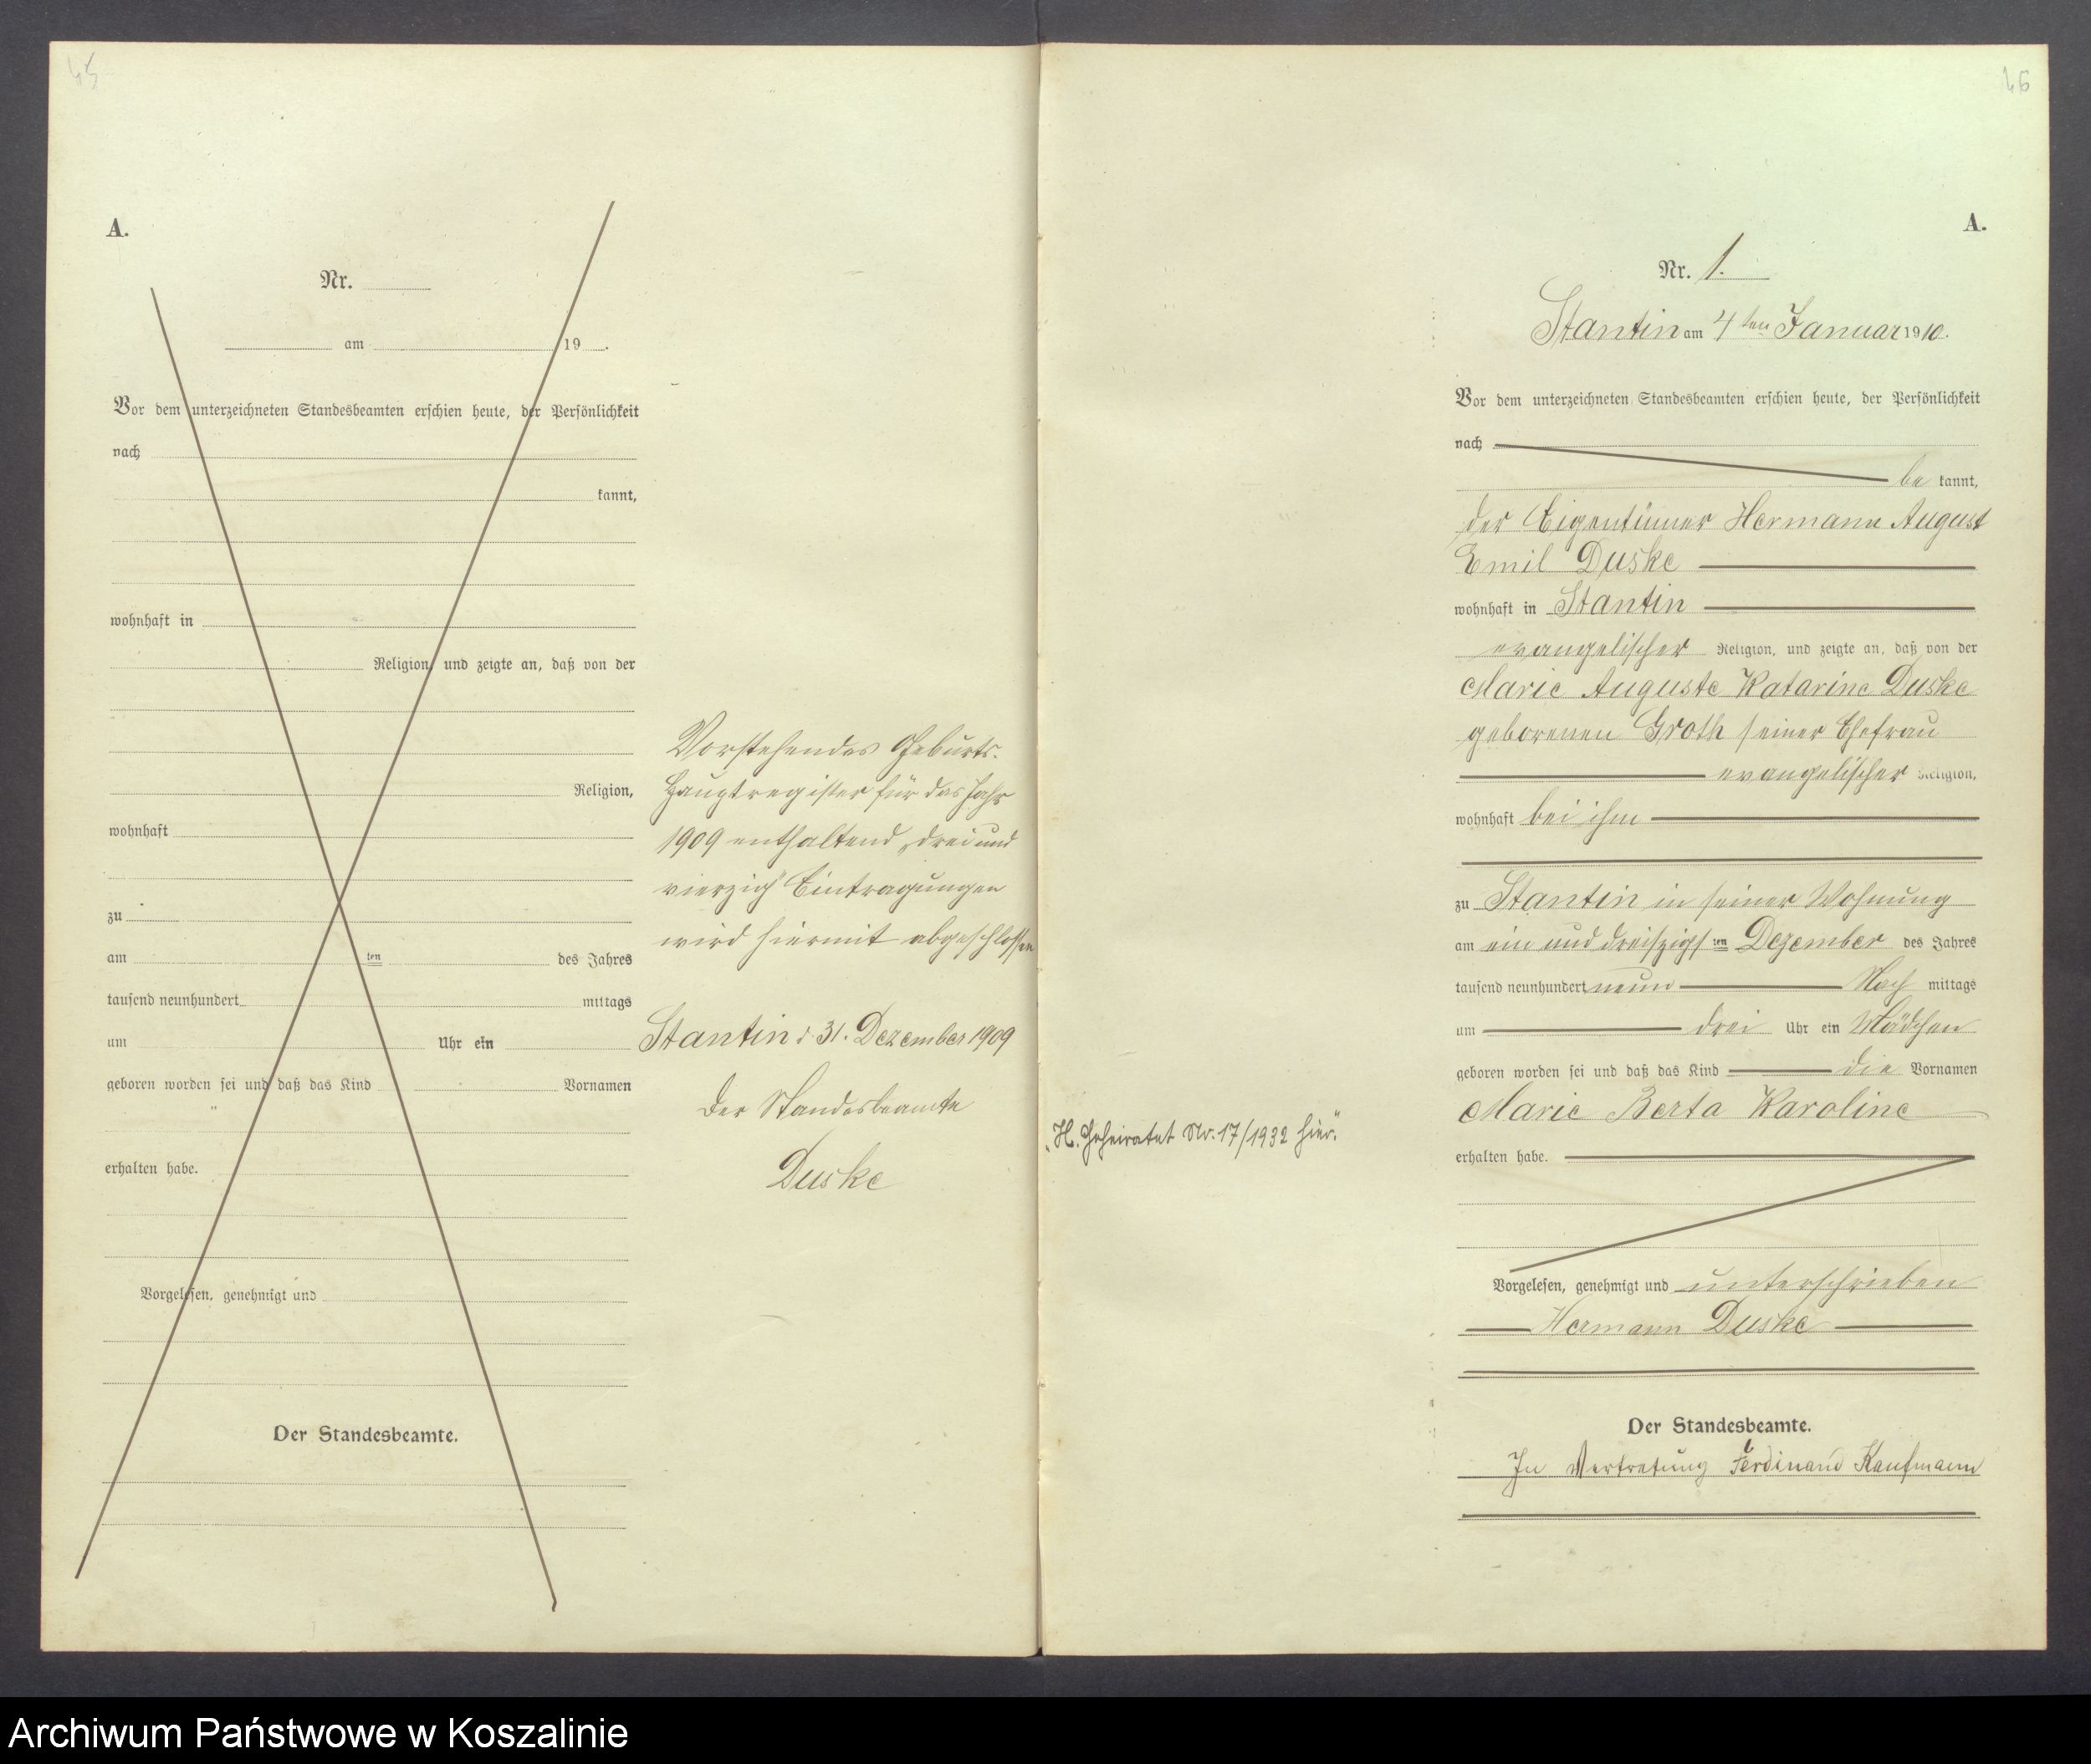 45
A.
Nr.
am 19 .
Vor dem unterzeichneten Standesbeamten erschien heute, der Persönlichkeit
nach
kannt,
wohnhaft in
Religion, und zeigte an, daß von der
Religion,
wohnhaft
zu
am ten des Jahres
tausend neunhundert mittags
um Uhr ein
geboren worden sei und daß das Kind Vornamen
erhalten habe.
Vorgelesen, genehmigt und
Der Standesbeamte.
Vorstehendes Geburts-
Hauptregister für das Jahr
1909 enthaltend „drei und
vierzig" Eintragungen
wird hiermit abgeschlossen
Stantin d. 31. Dezember 1909
Der Standesbeamte
Duske
46
A.
Nr. 1.
Stantin am 4ten Januar 1910.
Vor dem unterzeichneten Standesbeamten erschien heute, der Persönlichkeit
nach
be kannt,
der Eigentümer Hermann August
Emil Duske
wohnhaft in Stantin
evangelischer Religion, und zeigte an, daß von der
Marie Auguste Katarine Duske
geborenen Groth seiner Ehefrau
evangelischer Religion,
wohnhaft bei ihm
zu Stantin in seiner Wohnung
am ein und dreiszigsten Dezember des Jahres
tausend neunhundert neun Nach mittags
um drei Uhr ein Mädchen
geboren worden sei und daß das Kind die Vornamen
Marie Berta Karoline
erhalten habe.
„H. Geheiratet Nr. 17/1932 hier."
Vorgelesen, genehmigt und unterschrieben
Hermann Duske
Der Standesbeamte.
In Vertretung Ferdinand Kaufmann
Archiwum Państwowe w Koszalinie